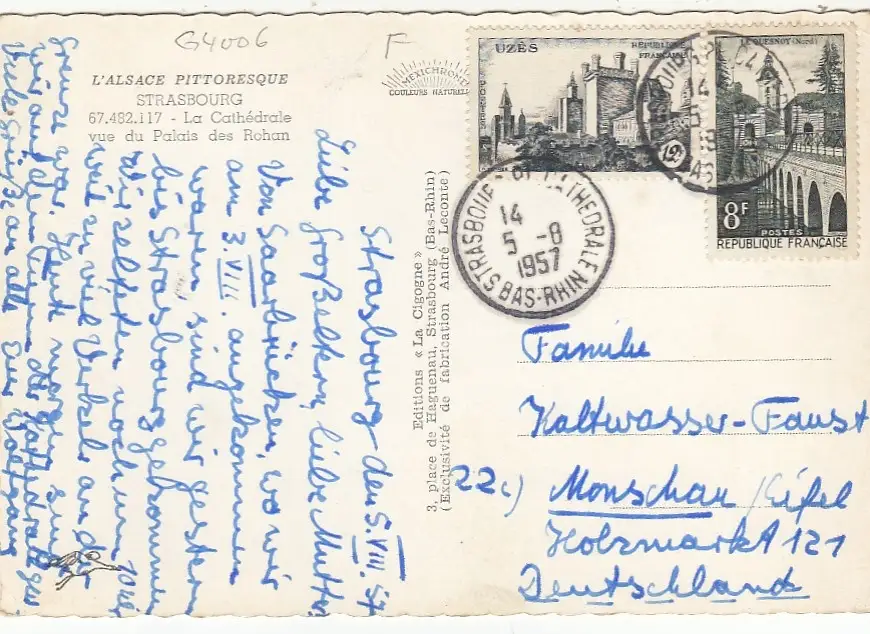 G4006
F
L'ALSACE PITTORESQUE
STRASBOURG
67.482.117 - La Cathédrale
vue du Palais des Rohan
MEXICHROME
COULEURS NATURELLES
UZÈS
RÉPUBLIQUE
FRANÇAISE
12F
LE QUESNOY (Nord)
8F
POSTES
RÉPUBLIQUE FRANÇAISE
STRASBOURG CATHEDRALE
14
5 - 8
1957
BAS-RHIN
14
5
19
Editions « La Cigogne »
3, place de Haguenau, Strasbourg (Bas-Rhin)
(Exclusivité de fabrication André Leconte)
Strasbourg den 5.VIII.57
Liebe Großeltern, liebe Mutter
Von Saarbrücken, wo wir
am 3.VIII. angekommen
waren sind wir gestern
bis Strasbourg gekommen
Wir zelteten noch um 10 Uhr
weil zu viel Verkehr an der
Grenze war. Heute morgen sind
wir auf dem Turm der Kathedrale
Viele Grüße an alle Euer Wolfgang
Familie
Kaltwasser-Faust
22c) Monschau/Eifel
Holzmarkt 121
Deutschland